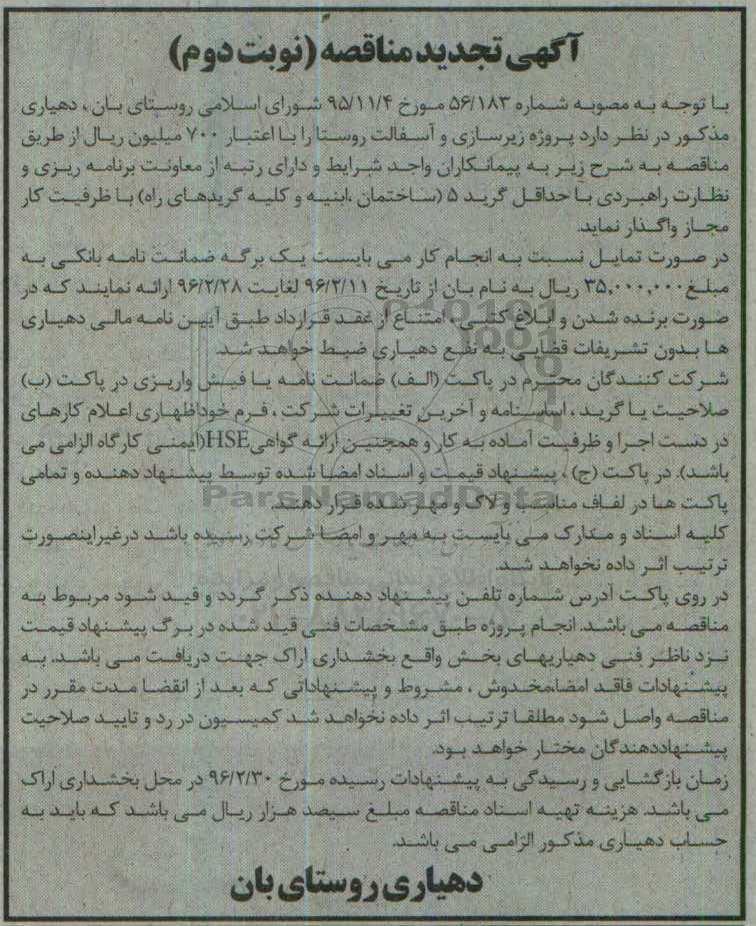 آگهی تجدید مناقصه (نوبت دوم)
با توجه به مصوبه شماره ۵۶/۱۸۳ مورخ ۹۵/۱۱/۴ شورای اسلامی روستای بان، دهیاری
مذکور در نظر دارد پروژه زیرسازی و آسفالت روستا را با اعتبار ۷۰۰ میلیون ریال از طریق
مناقصه به شرح زیر به پیمانکاران واجد شرایط و دارای رتبه از معاونت برنامه ریزی و
نظارت راهبردی با حداقل گرید ۵ (ساختمان ،ابنیه و کلیه گریدهای راه) با ظرفیت کار
مجاز واگذار نماید.
در صورت تمایل نسبت به انجام کار می بایست یک برگه ضمانت نامه بانکی به
مبلغ ۳۵,۰۰۰,۰۰۰ ریال به نام بان از تاریخ ۹۶/۲/۱۱ لغایت ۹۶/۲/۲۸ ارائه نمایند که در
صورت برنده شدن و ابلاغ کتبی ، امتناع از عقد قرارداد طبق آیین نامه مالی دهیاری
ها بدون تشریفات قضایی به نفع دهیاری ضبط خواهد شد.
شرکت کنندگان محترم در پاکت (الف) ضمانت نامه یا فیش واریزی در پاکت (ب)
صلاحیت یا گرید ، اساسنامه و آخرین تغییرات شرکت ، فرم خوداظهاری اعلام کارهای
در دست اجرا و ظرفیت آماده به کار و همچنین ارائه گواهی HSE(ایمنی کارگاه الزامی می
باشد). در پاکت (ج) ، پیشنهاد قیمت و اسناد امضا شده توسط پیشنهاد دهنده و تمامی
پاکت ها در لفاف مناسب و لاک و مهر شده قرار دهند.
کلیه اسناد و مدارک می بایست به مهر و امضا شرکت رسیده باشد درغیراینصورت
ترتیب اثر داده نخواهد شد.
در روی پاکت آدرس شماره تلفن پیشنهاد دهنده ذکر گردد و قید شود مربوط به
مناقصه می باشد. انجام پروژه طبق مشخصات فنی قید شده در برگ پیشنهاد قیمت
نزد ناظر فنی دهیاریهای بخش واقع بخشداری اراک جهت دریافت می باشد. به
پیشنهادات فاقد امضا،مخدوش ، مشروط و پیشنهاداتی که بعد از انقضا مدت مقرر در
مناقصه واصل شود مطلقا ترتیب اثر داده نخواهد شد کمیسیون در رد و تایید صلاحیت
پیشنهاددهندگان مختار خواهد بود.
زمان بازگشایی و رسیدگی به پیشنهادات رسیده مورخ ۹۶/۲/۳۰ در محل بخشداری اراک
می باشد. هزینه تهیه اسناد مناقصه مبلغ سیصد هزار ریال می باشد که باید به
حساب دهیاری مذکور الزامی می باشد.
دهیاری روستای بان
ParsNamadData